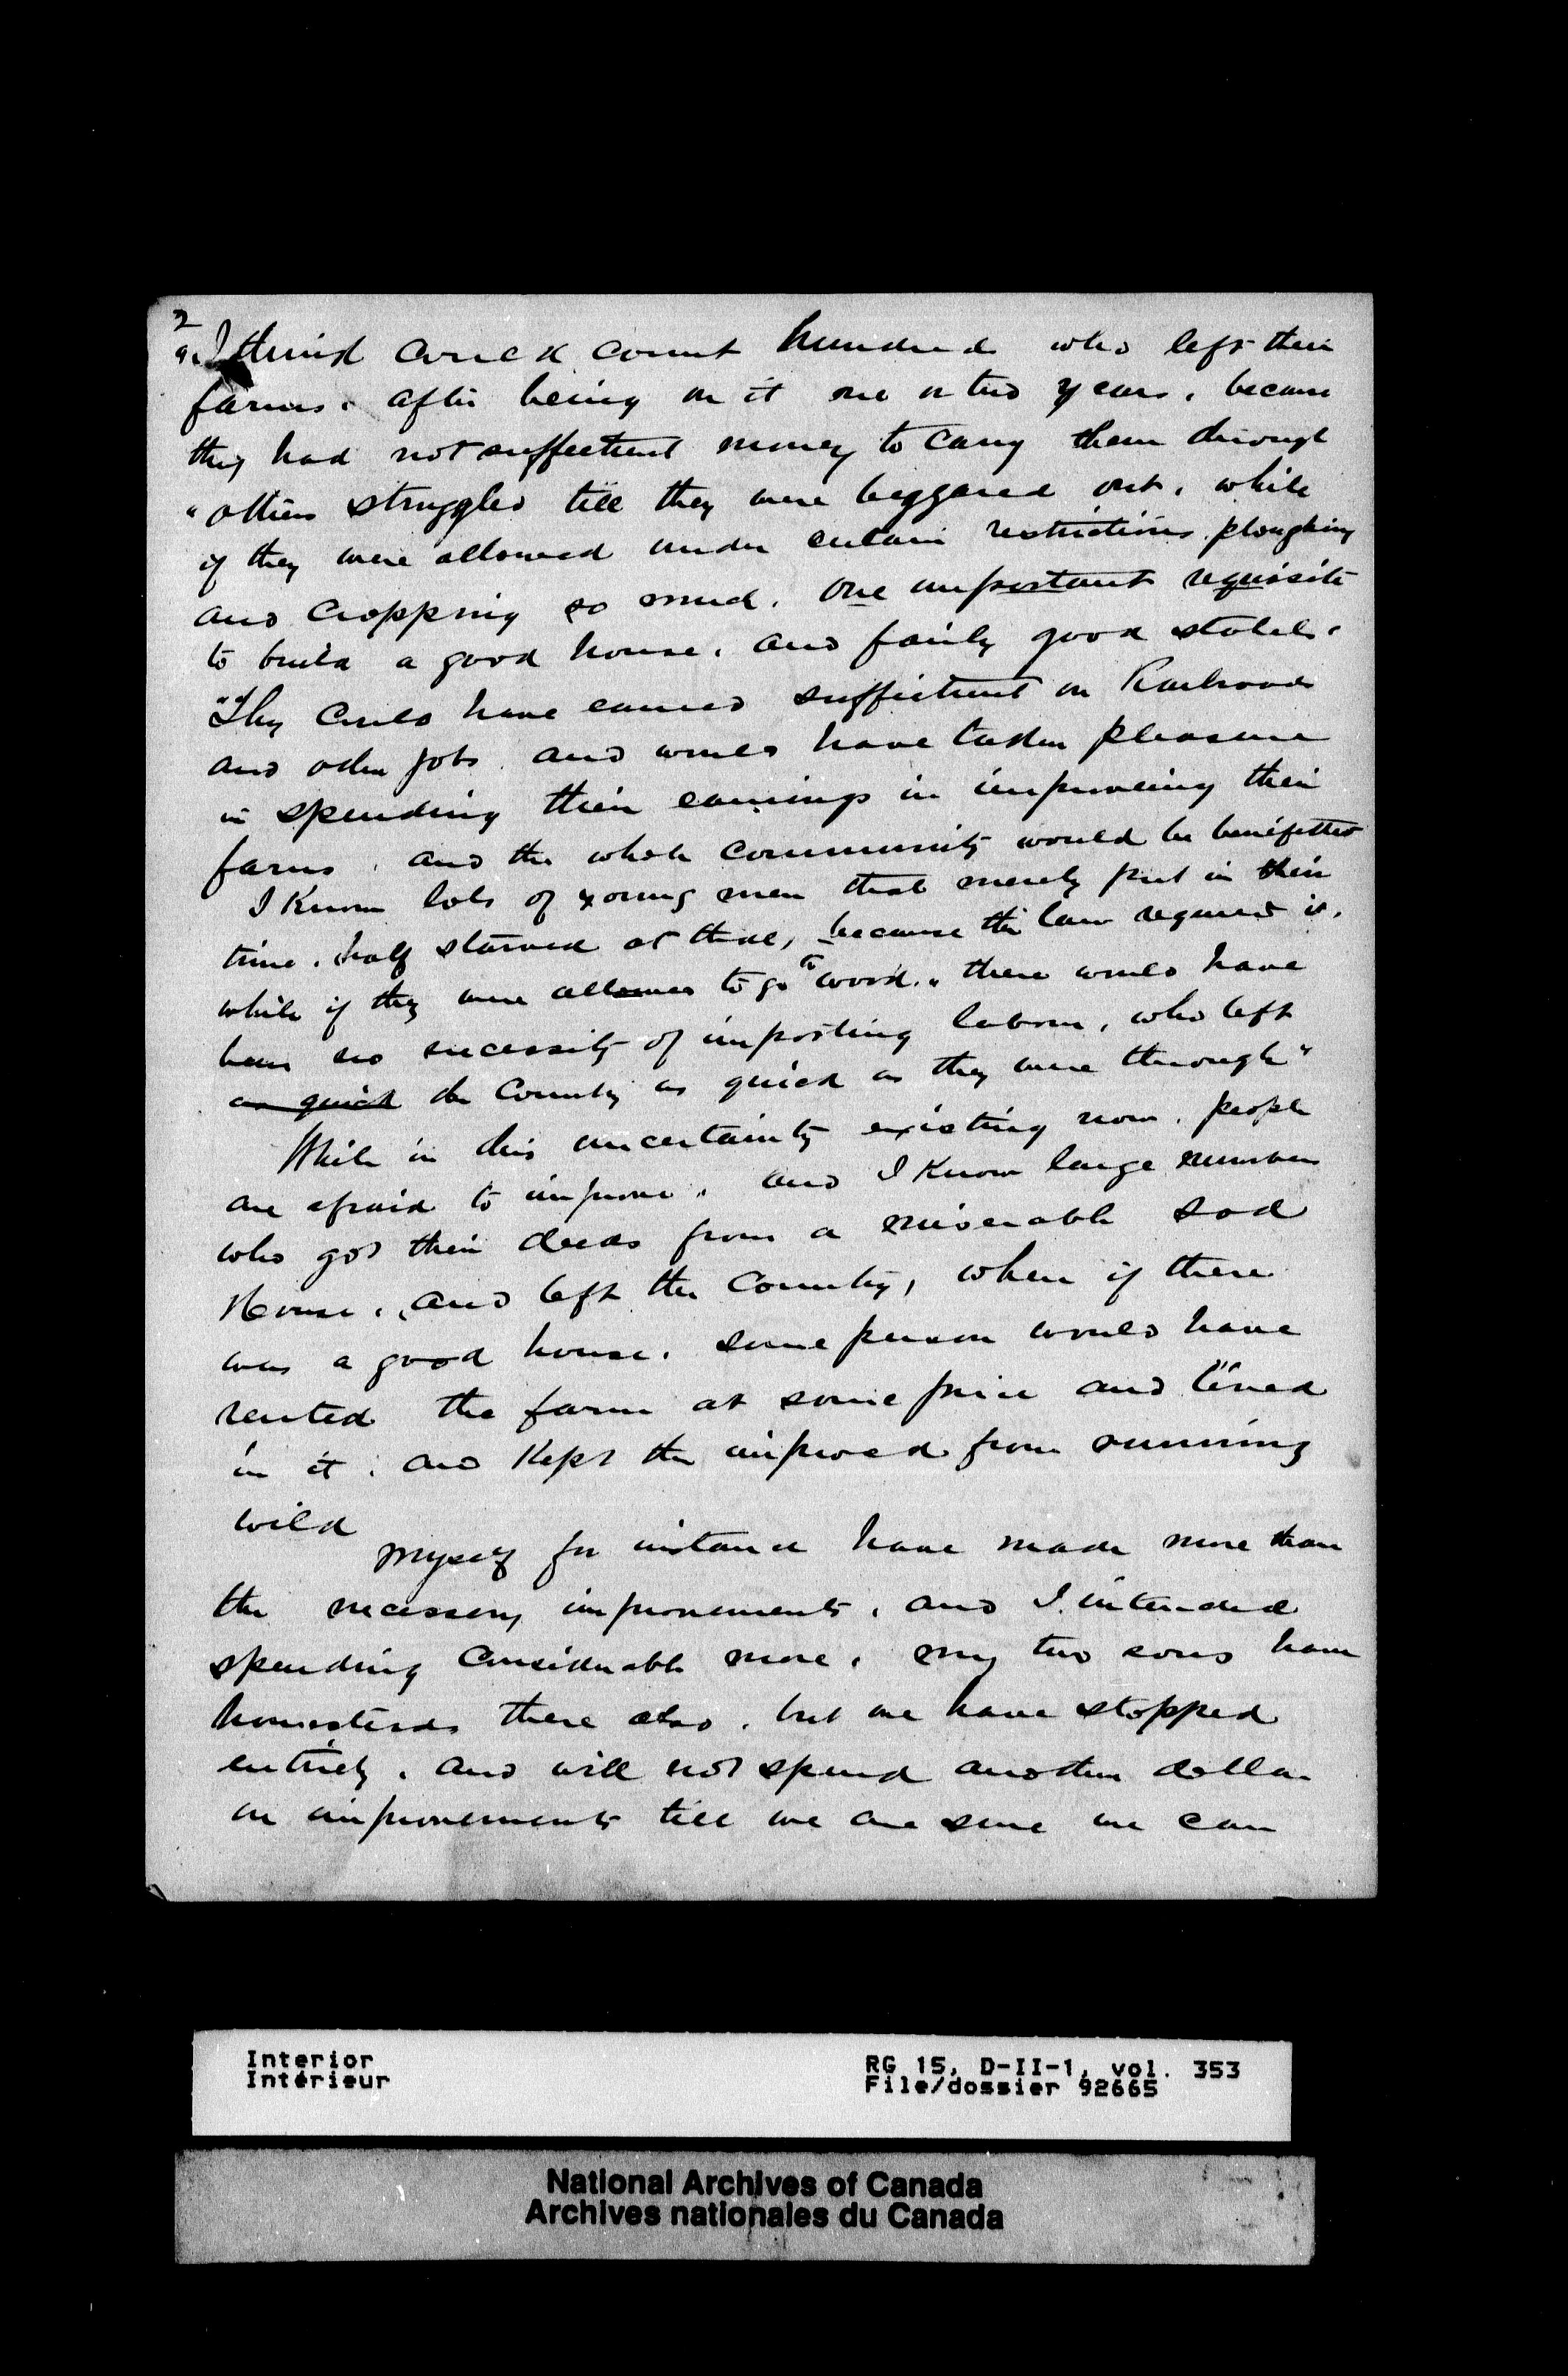 2
I think could count hundreds who left their
farms. after being on it one or two years. because
they had not suffectient money to carry them through
"others struggled till they were beggared out. while
if they were allowed under certain restrictions. ploughing
and cropping so much. One important requisite
to build a good house. and fairly good stable.
"They could have earned suffictient on Railroads
and other jobs. and would have taken pleasure
in spending their earnings in improveing their
farms. and the whole community would be benefitted
I Know lots of young men that merely put in their
time. half starved at that, because the law required it.
while if they were allowed to go to work. there would have
been no necessity of importing labour, who left
as quick the Country as quick as they were through"
While in this uncertainty existing now. people
are afraid to improve. and I Know large numbers
who got their deeds from a miserable sod
House. and left the Country, when if there
was a good house. some person would have
rented the farm at some price and lived
in it. and Kept the improved from running
wild
Myself for instance have made more than
the necessary improvements. and I intended
spending considerable more. my two sons have
homesteads there also. but we have stopped
entirely. and will not spend another dollar
on improvements till we are sure we can
Interior
Intérieur
RG 15, D-II-1, vol. 353
File/dossier 92665
National Archives of Canada
Archives nationales du Canada